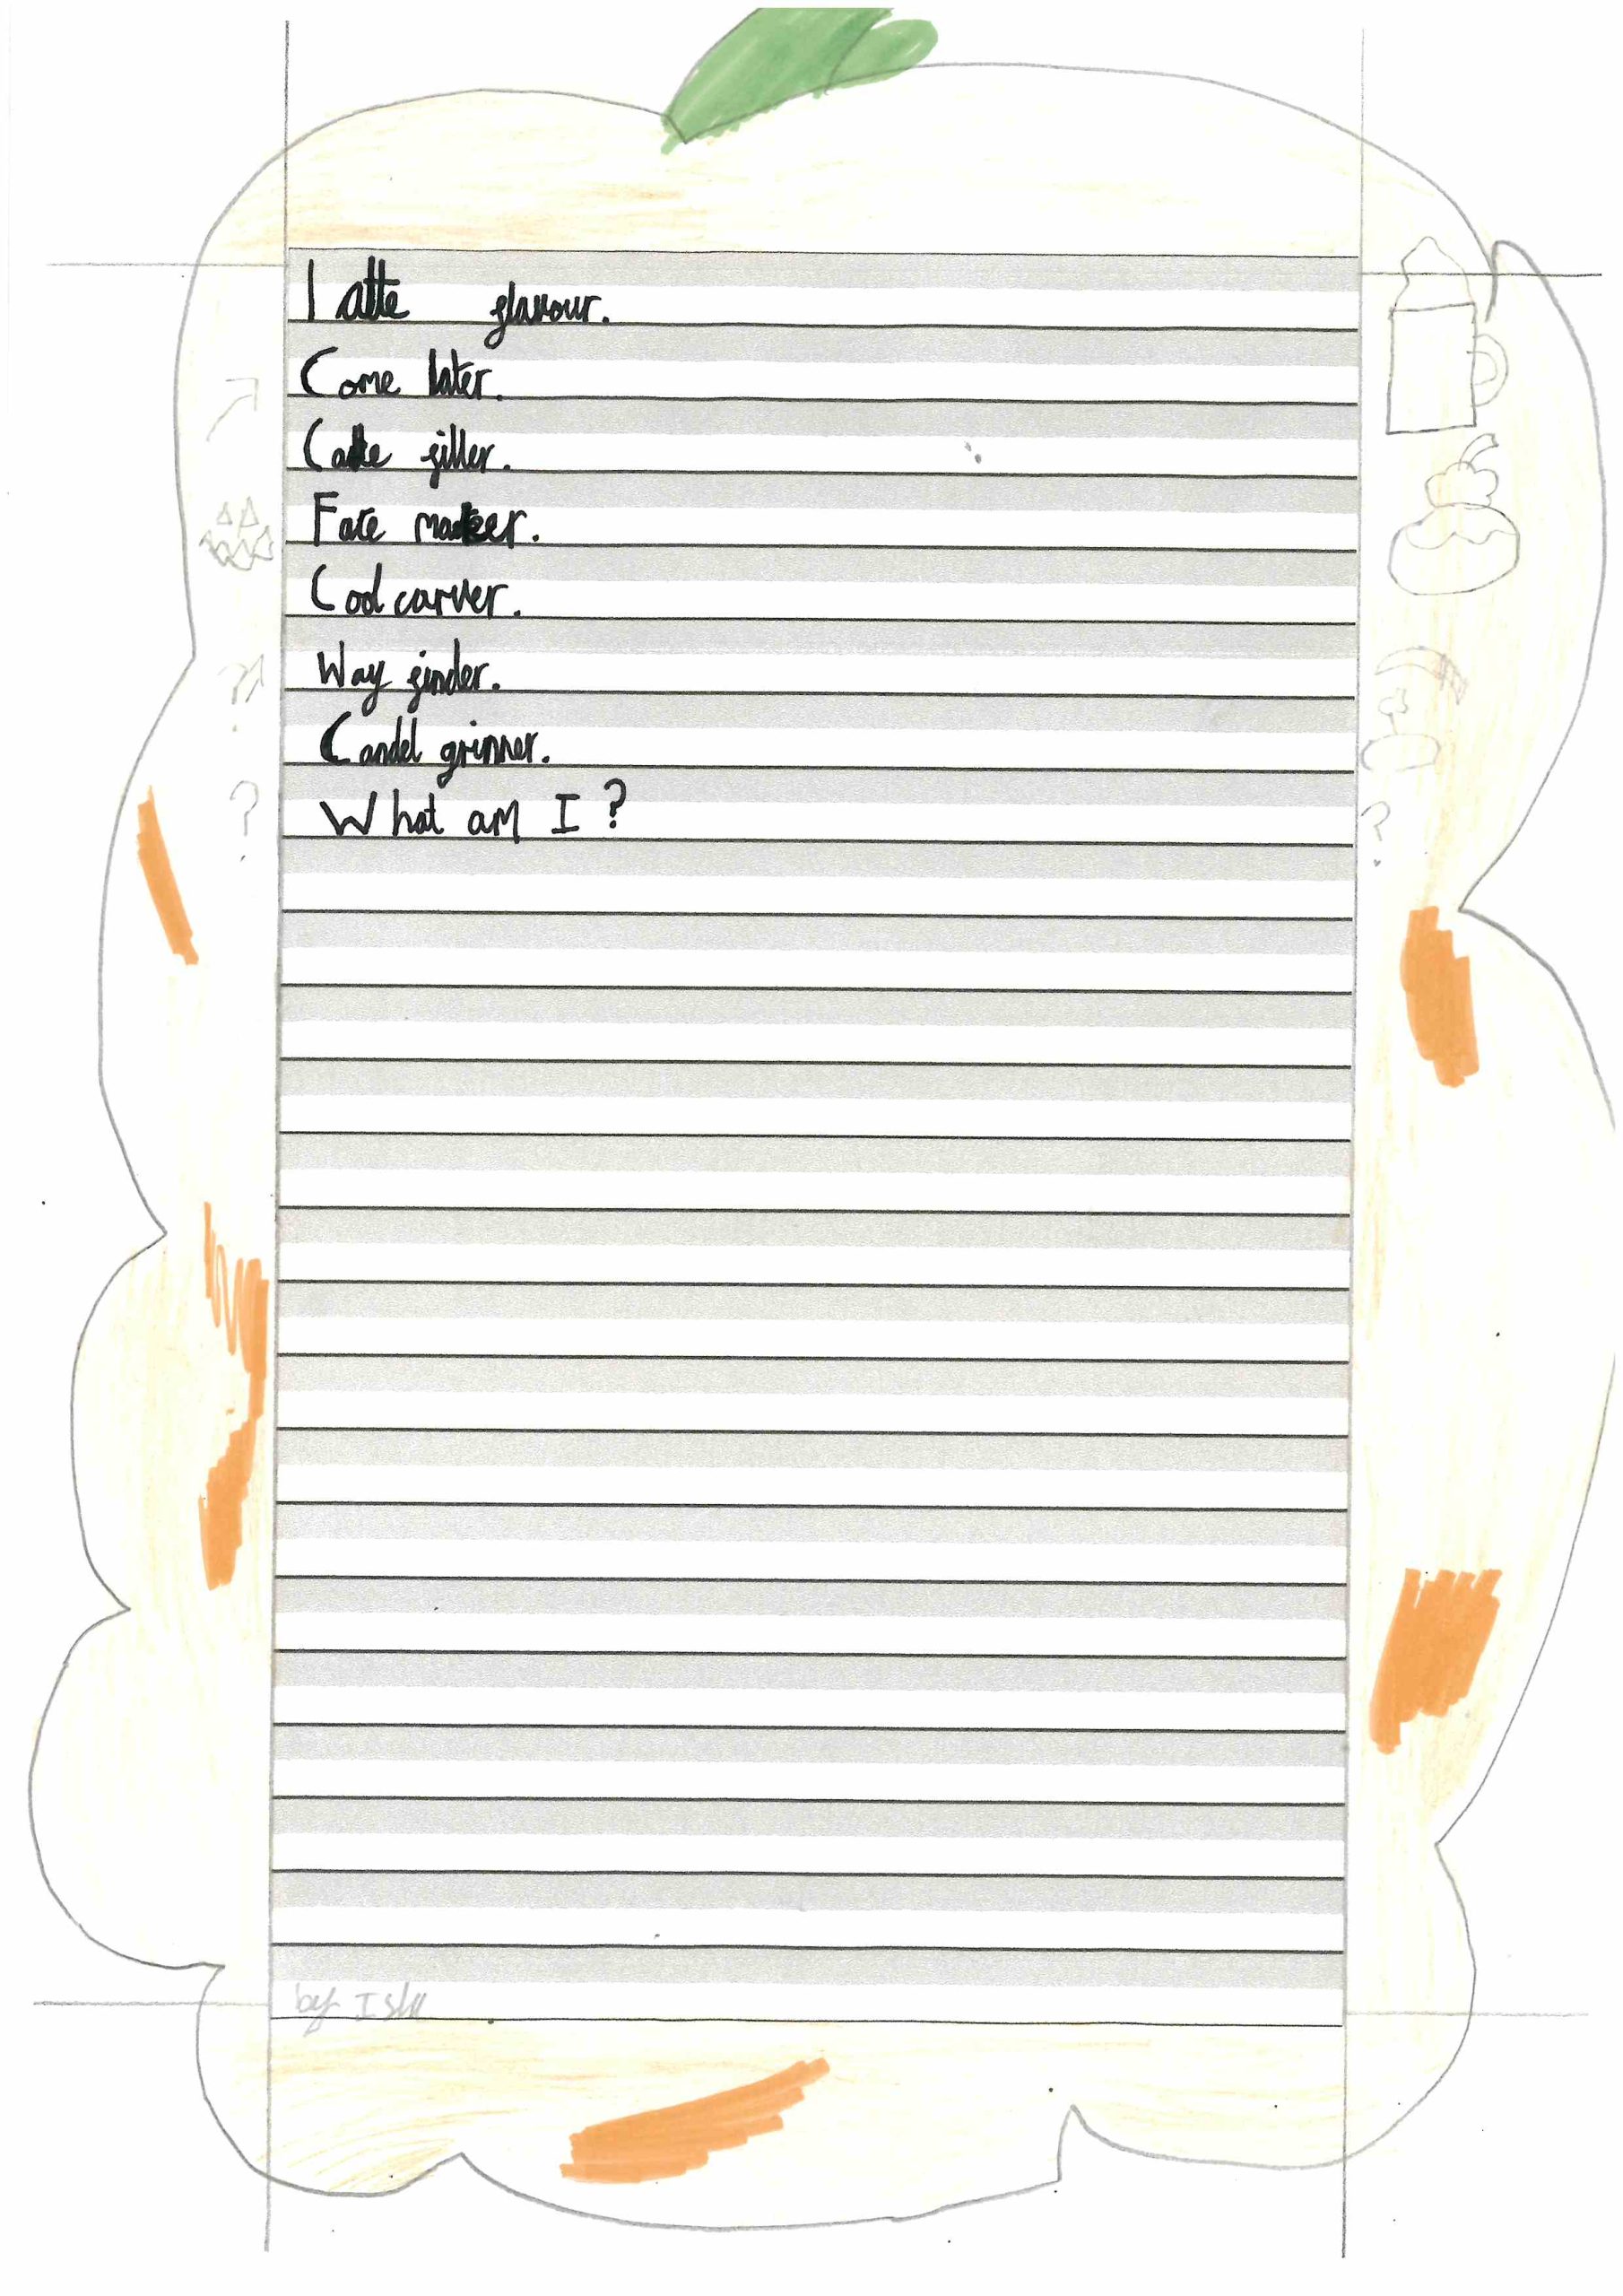 Latte flavour.
Come later.
Cake filler.
Face maker.
Cool carver.
Way finder.
Candel grinner.
What am I?
by Isla